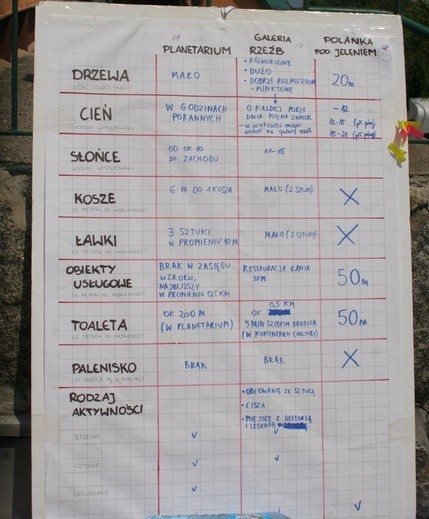 PLANETARIUM
GALERIA
RZEŹB
POLANKA
POD JELENIEM
DRZEWA
MAŁO
• RÓŻNORODNE
• DUŻO
• DOBRZE ROZMIESZCZONE
- PUNKTOWNE
20m
CIEŃ
W GODZINACH
PORANNYCH
O KAŻDEJ PORZE
DNIA MOŻNA ZNALEŹĆ
- 12
12-15
15-21
SŁOŃCE
OD OK 10
DO ZACHODU
11-15
KOSZE
6 M DO 1 KOSZA
MAŁO (2 SZTUKI)
X
ŁAWKI
3 SZTUKI
W PROMIENIU 10 M
MAŁO (2 SZTUKI)
X
OBIEKTY
USŁUGOWE
BRAK W ZASIĘGU
WZROKU,
NAJBLIŻSZY
W PROMIENIU 0,5 KM
RESTAURACJA KANIA
30M
50m
TOALETA
OK 200 M
(W PLANETARIUM)
0,5 KM
OK
5 MIN SZYBKIM KROKIEM
50m
PALENISKO
BRAK
BRAK
X
RODZAJ
AKTYWNOŚCI
• OBCOWANIE ZE SZTUKĄ
• CISZA
• MIEJSCE Z HISTORIĄ
I LEGENDĄ
JEDZENIE
CZYTANIE